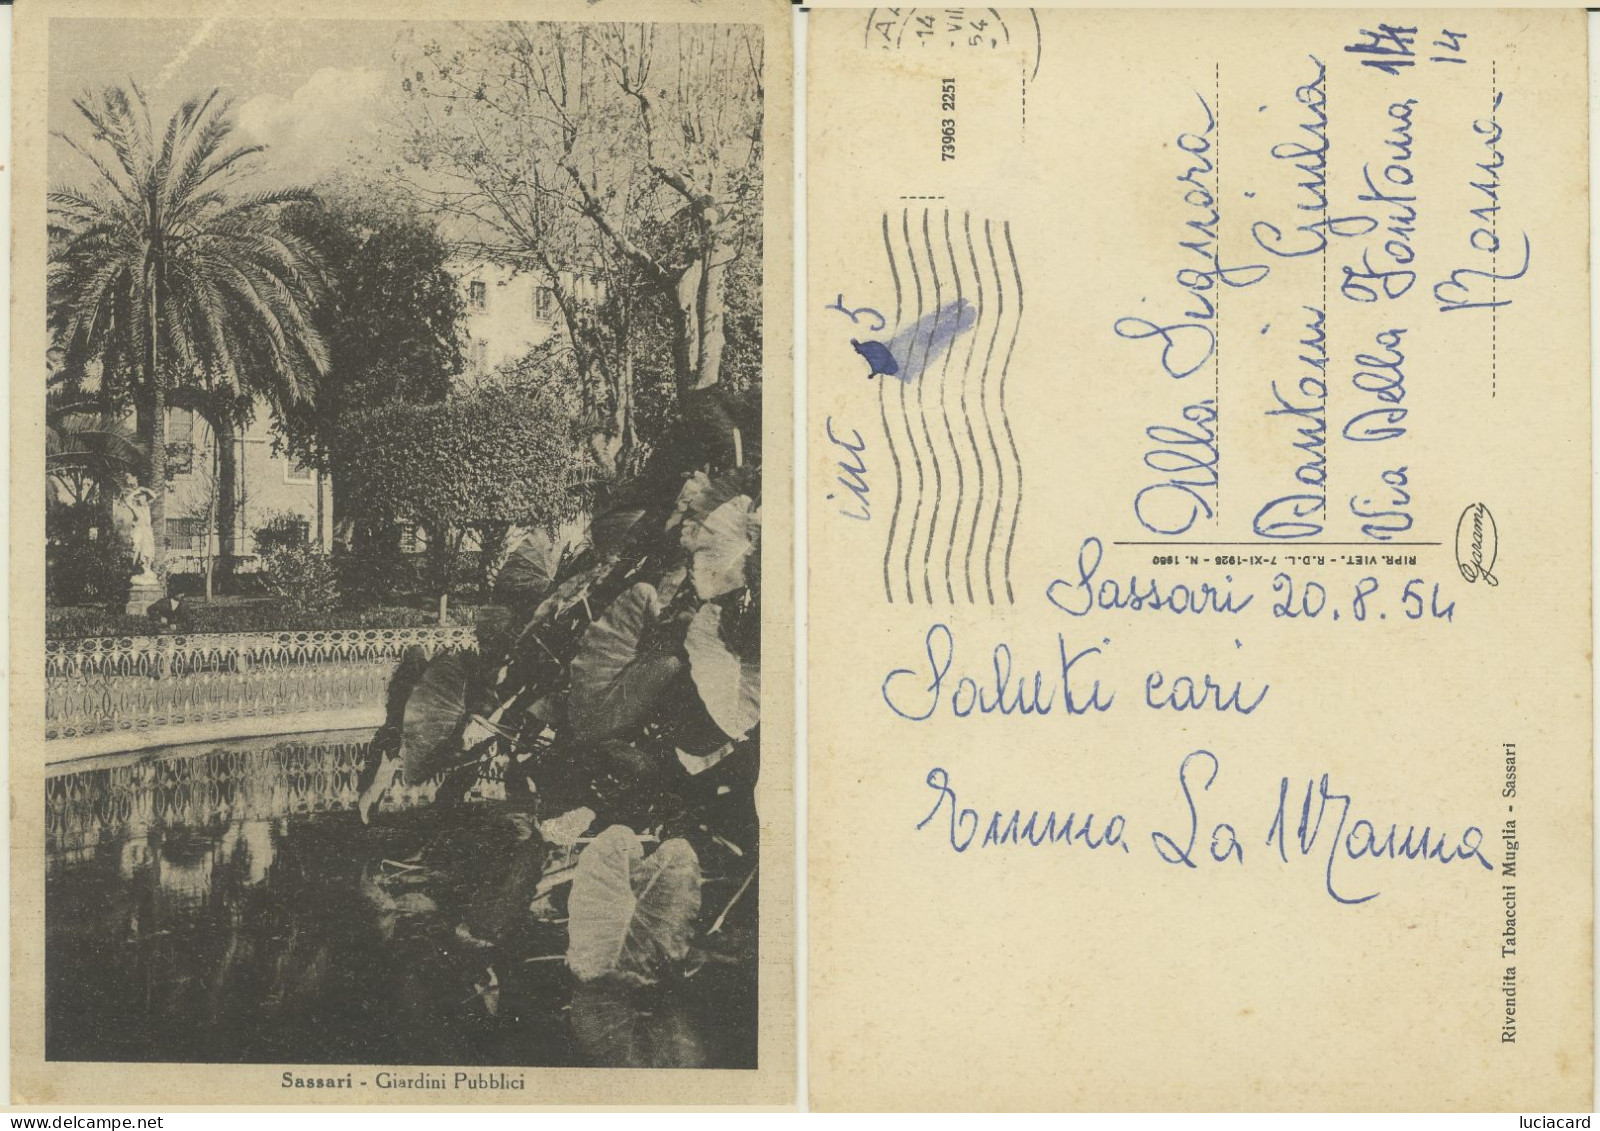 Sassari - Giardini Pubblici
14
VIII
54
73963 2251
5
Alla Signora
Giulia
Via Della Fontana 14
14
Roma
RIPR. VIET. - R.D.L. 7-XI-1925 - N. 1950
Garami
Sassari 20.8.54
Saluti cari
Emma La Manna
Rivendita Tabacchi Muglia - Sassari
delcampe.net
luciacard